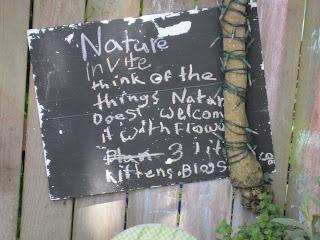 Nature
invite
think of the
things Natur
Does! Welcom
it with Flow
3 lit
kittens. Blogs